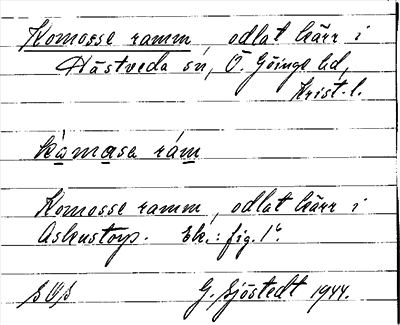 Komosse ramm, odlat kärr i
Hästveda sn, Ö. Göinge hd,
Krist. l.
kåmasa rám
Komosse ramm, odlat kärr i
Askustorp. Ek.: fig. 1
SOS G. Sjöstedt 1944.